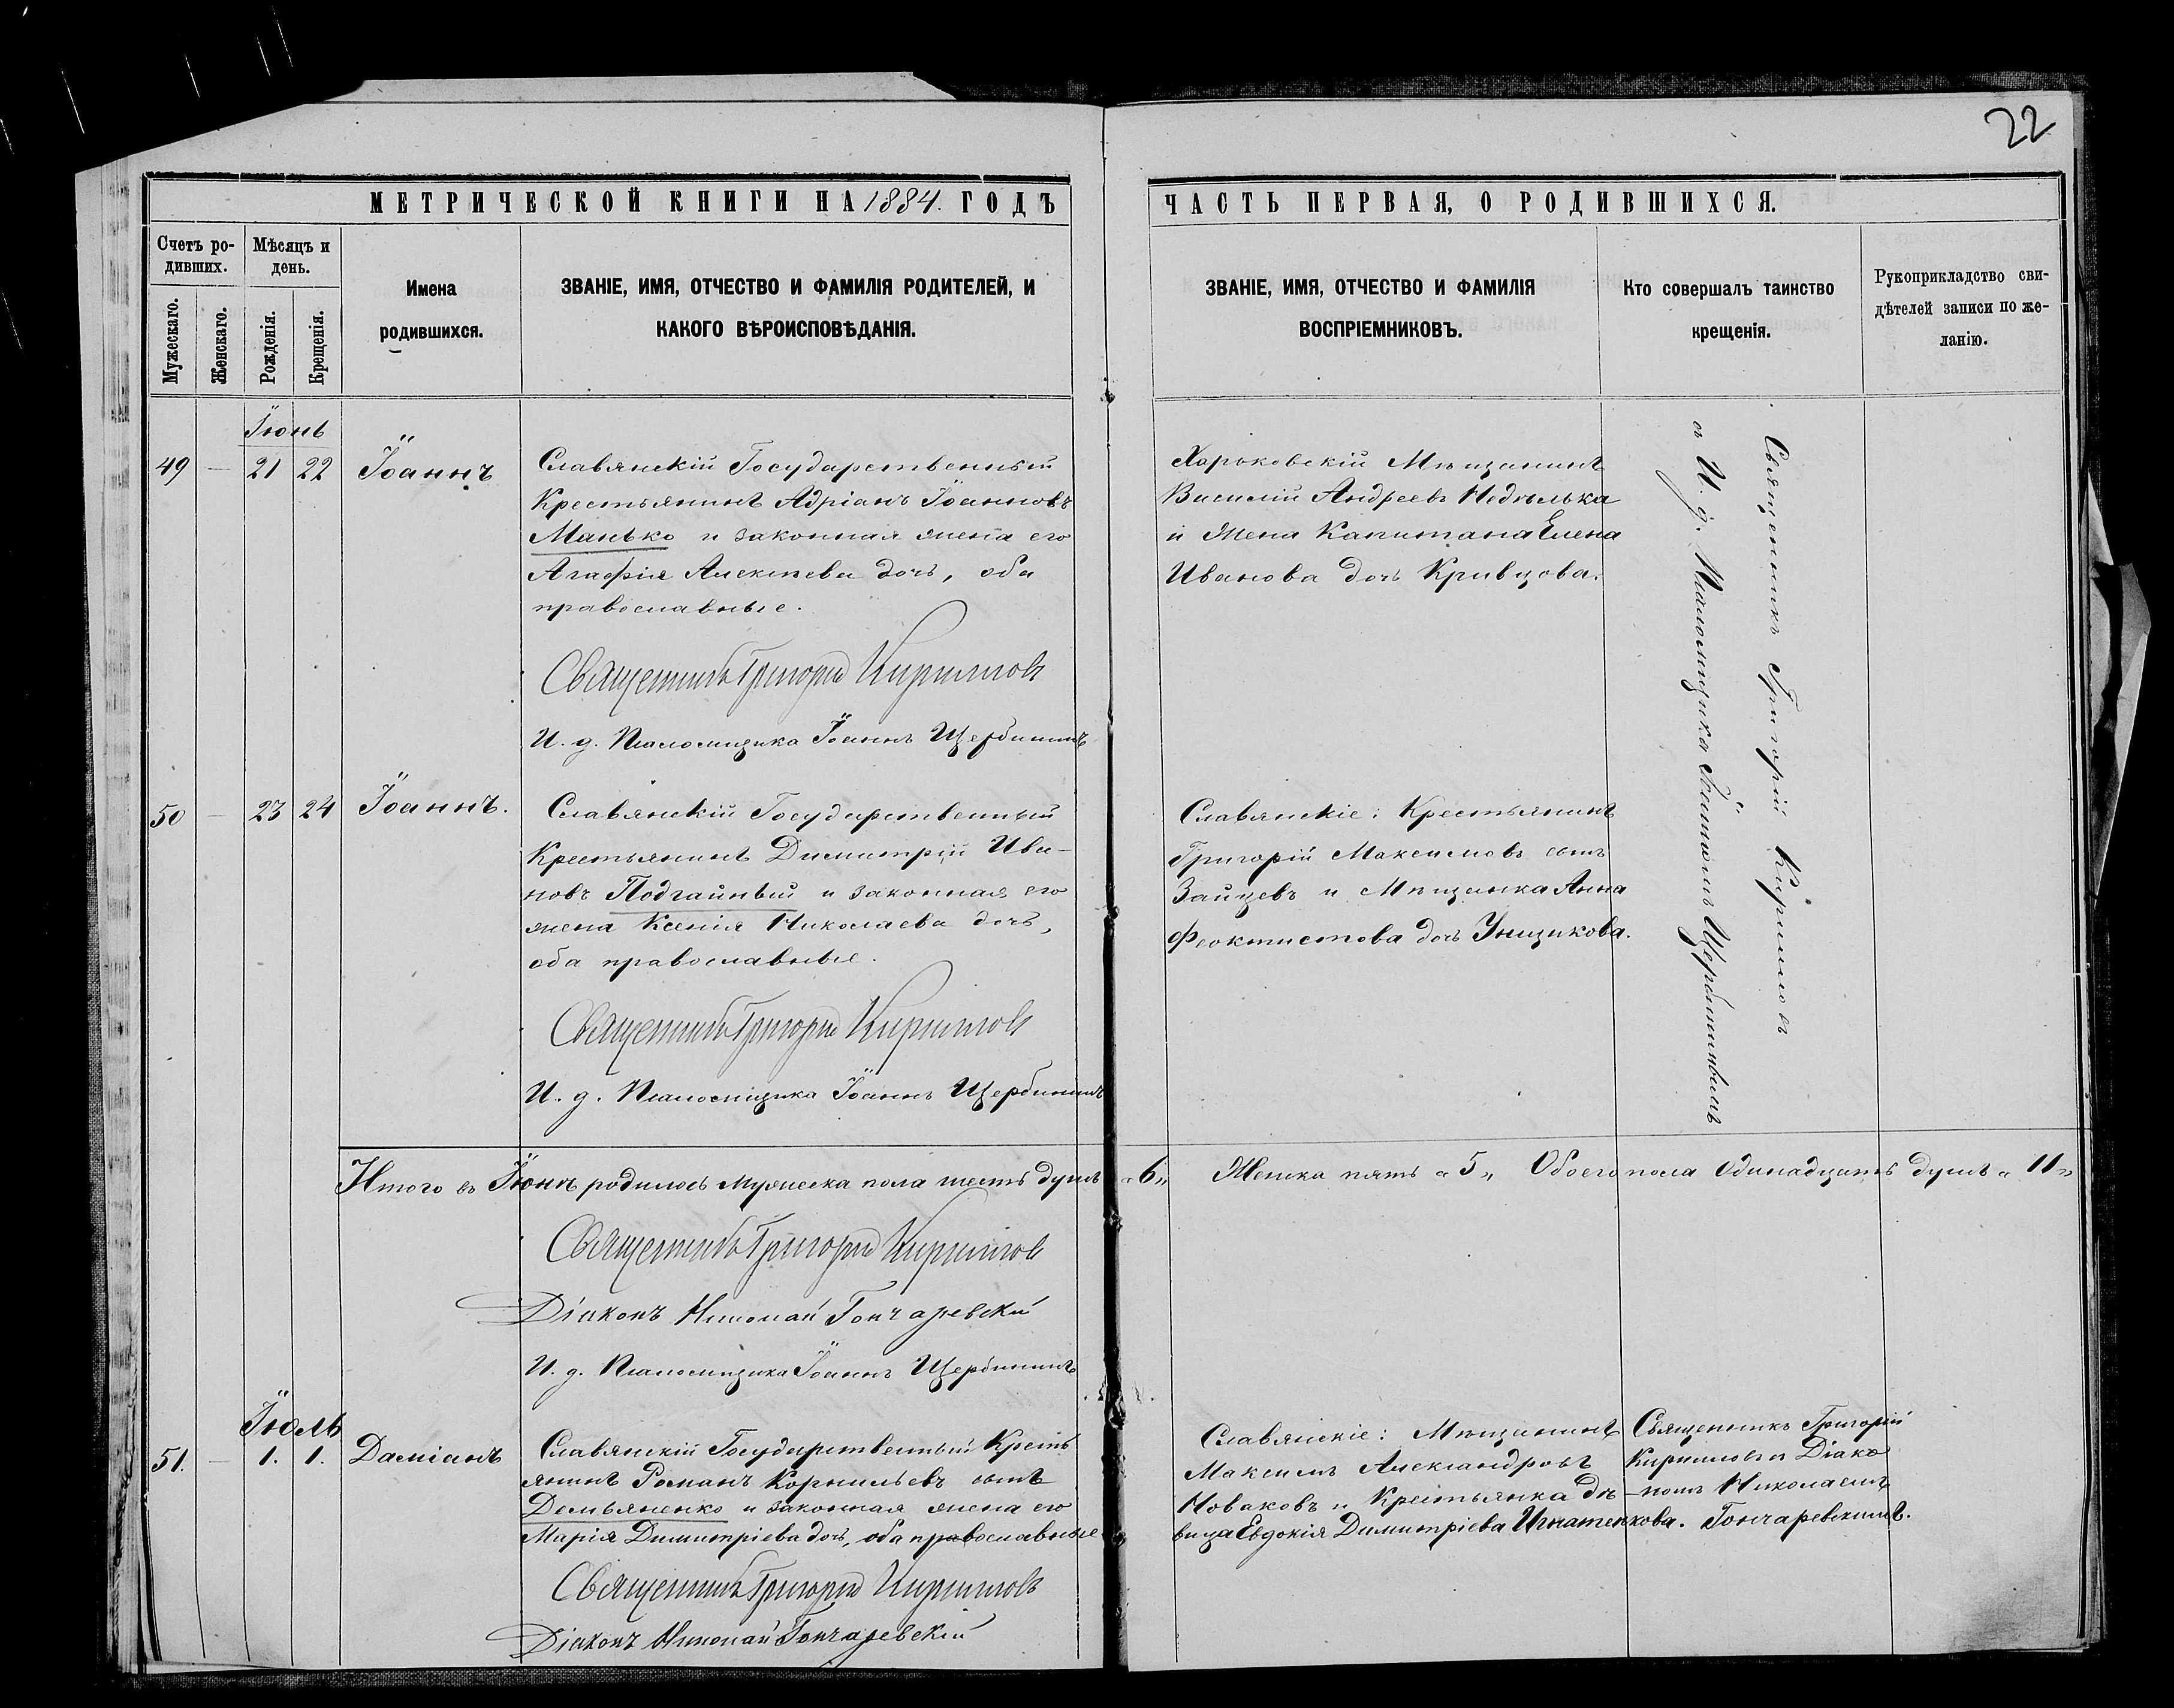 22
МЕТРИЧЕСКОЙ КНИГИ НА 1884. ГОДЪ
ЧАСТЬ ПЕРВАЯ, О РОДИВШИХСЯ.
Счетъ ро-
дившихъ.
Мѣсяцъ и
день.
Мужескаго.
Женскаго.
Рожденія.
Крещенія.
Имена
родившихся.
ЗВАНІЕ, ИМЯ, ОТЧЕСТВО И ФАМИЛІЯ РОДИТЕЛЕЙ, И
КАКОГО ВѢРОИСПОВѢДАНІЯ.
ЗВАНІЕ, ИМЯ, ОТЧЕСТВО И ФАМИЛІЯ
ВОСПРІЕМНИКОВЪ.
Кто совершалъ таинство
крещенія.
Рукоприкладство сви-
дѣтелей записи по же-
ланію.
Іюнь
49 — 21 22 Іоаннъ
Славянскій Государственный
Крестьянинъ Адріанъ Іоанновъ
Манько и законная жена его
Агафія Алексѣева дочь, оба
православные.
Священникъ Григорій Кирилловъ
И. д. Псаломщика Іоаннъ Щербининъ
Харьковскій Мѣщанинъ
Василій Андреевъ Недѣлька
и Жена Капитана Елена
Иванова дочь Кривцова.
Священникъ Григорій Кирилловъ
съ И. д. Псаломщика Іоанномъ Щербининымъ
50 — 23 24 Іоаннъ.
Славянскій Государственный
Крестьянинъ Димитрій Ива-
новъ Подгайный и законная его
жена Ксенія Николаева дочь,
оба православные.
Священникъ Григорій Кирилловъ
И. д. Псаломщика Іоаннъ Щербининъ
Славянскіе: Крестьянинъ
Григорій Максимовъ сынъ
Зайцевъ и Мѣщанка Анна
Феоктистова дочь Унщикова.
Итого въ Іюнѣ родилось мужеска пола шесть душъ „6„ Женска пять „5„ Обоего пола Одинадцать душъ „11„
Священникъ Григорій Кирилловъ
Діаконъ Николай Гончаревскій
И. д. Псаломщика Іоаннъ Щербининъ
Іюль
51. — 1. 1. Даміанъ
Славянскій Государственный Кресть
янинъ Романъ Корнильевъ сынъ
Демьяненко и законная жена его
Марія Димитріева дочь, оба православные
Священникъ Григорій Кирилловъ
Діаконъ Николай Гончаревскій
Славянскіе: Мѣщанинъ
Максимъ Александровъ
Новаковъ и Крестьянка дѣ-
вица Евдокія Димитріева Игнатенкова.
Священникъ Григорій
Кирилловъ съ Діако
номъ Николаемъ
Гончаревскимъ.